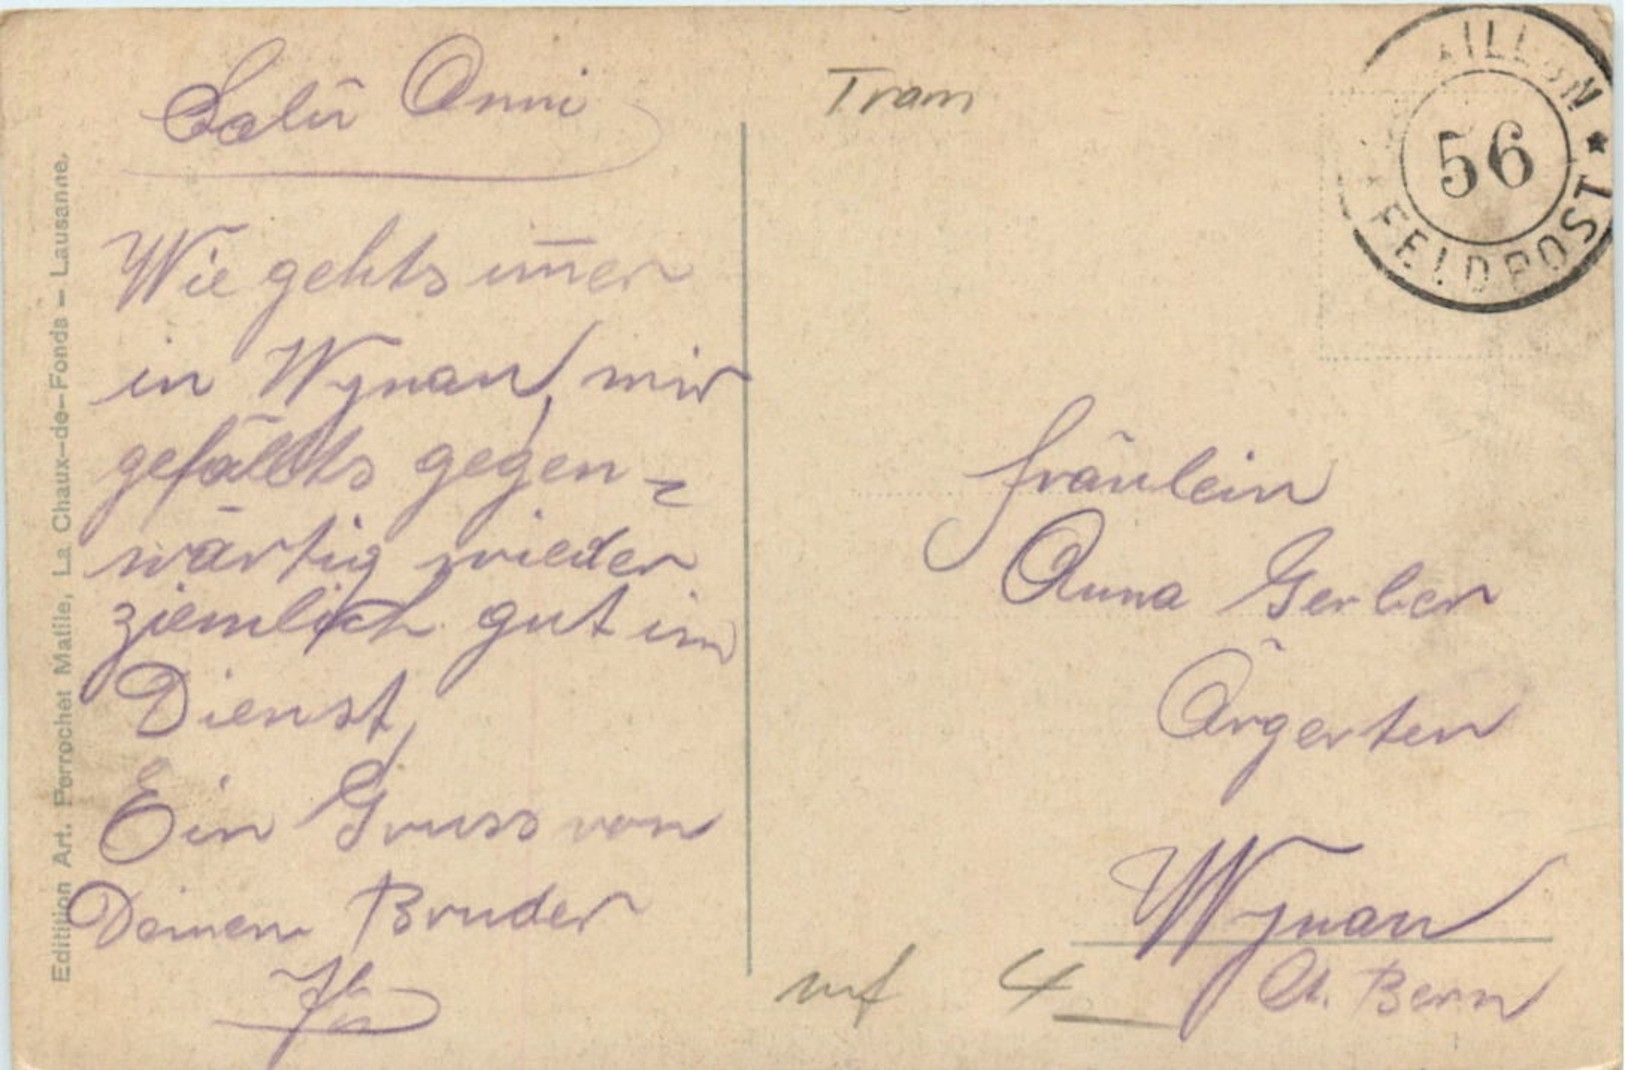 Salü Anni
Wie gehts im̄er
in Wynau, mir
gefällts gegen-
wärtig wieder
ziemlich gut im
Dienst,
Ein Gruss von
Deinem Bruder
Edition Art. Perrochet Matile, La Chaux-de-Fonds - Lausanne.
Tram
56
FELDPOST
Fräulein
Anna Gerber
Ärgerten
Wynau
Ct. Bern
4